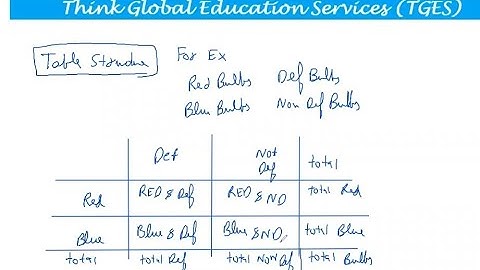 Think Global Education Services (TGES)
Table Structure For Ex
Red Bulbs Def Bulbs
Blue Bulbs Non Def Bulbs
Def Not Def total
Red RED & Def RED & ND total Red
Blue Blue & Def Blue & ND total Blue
total total Def total Non Def total Bulbs